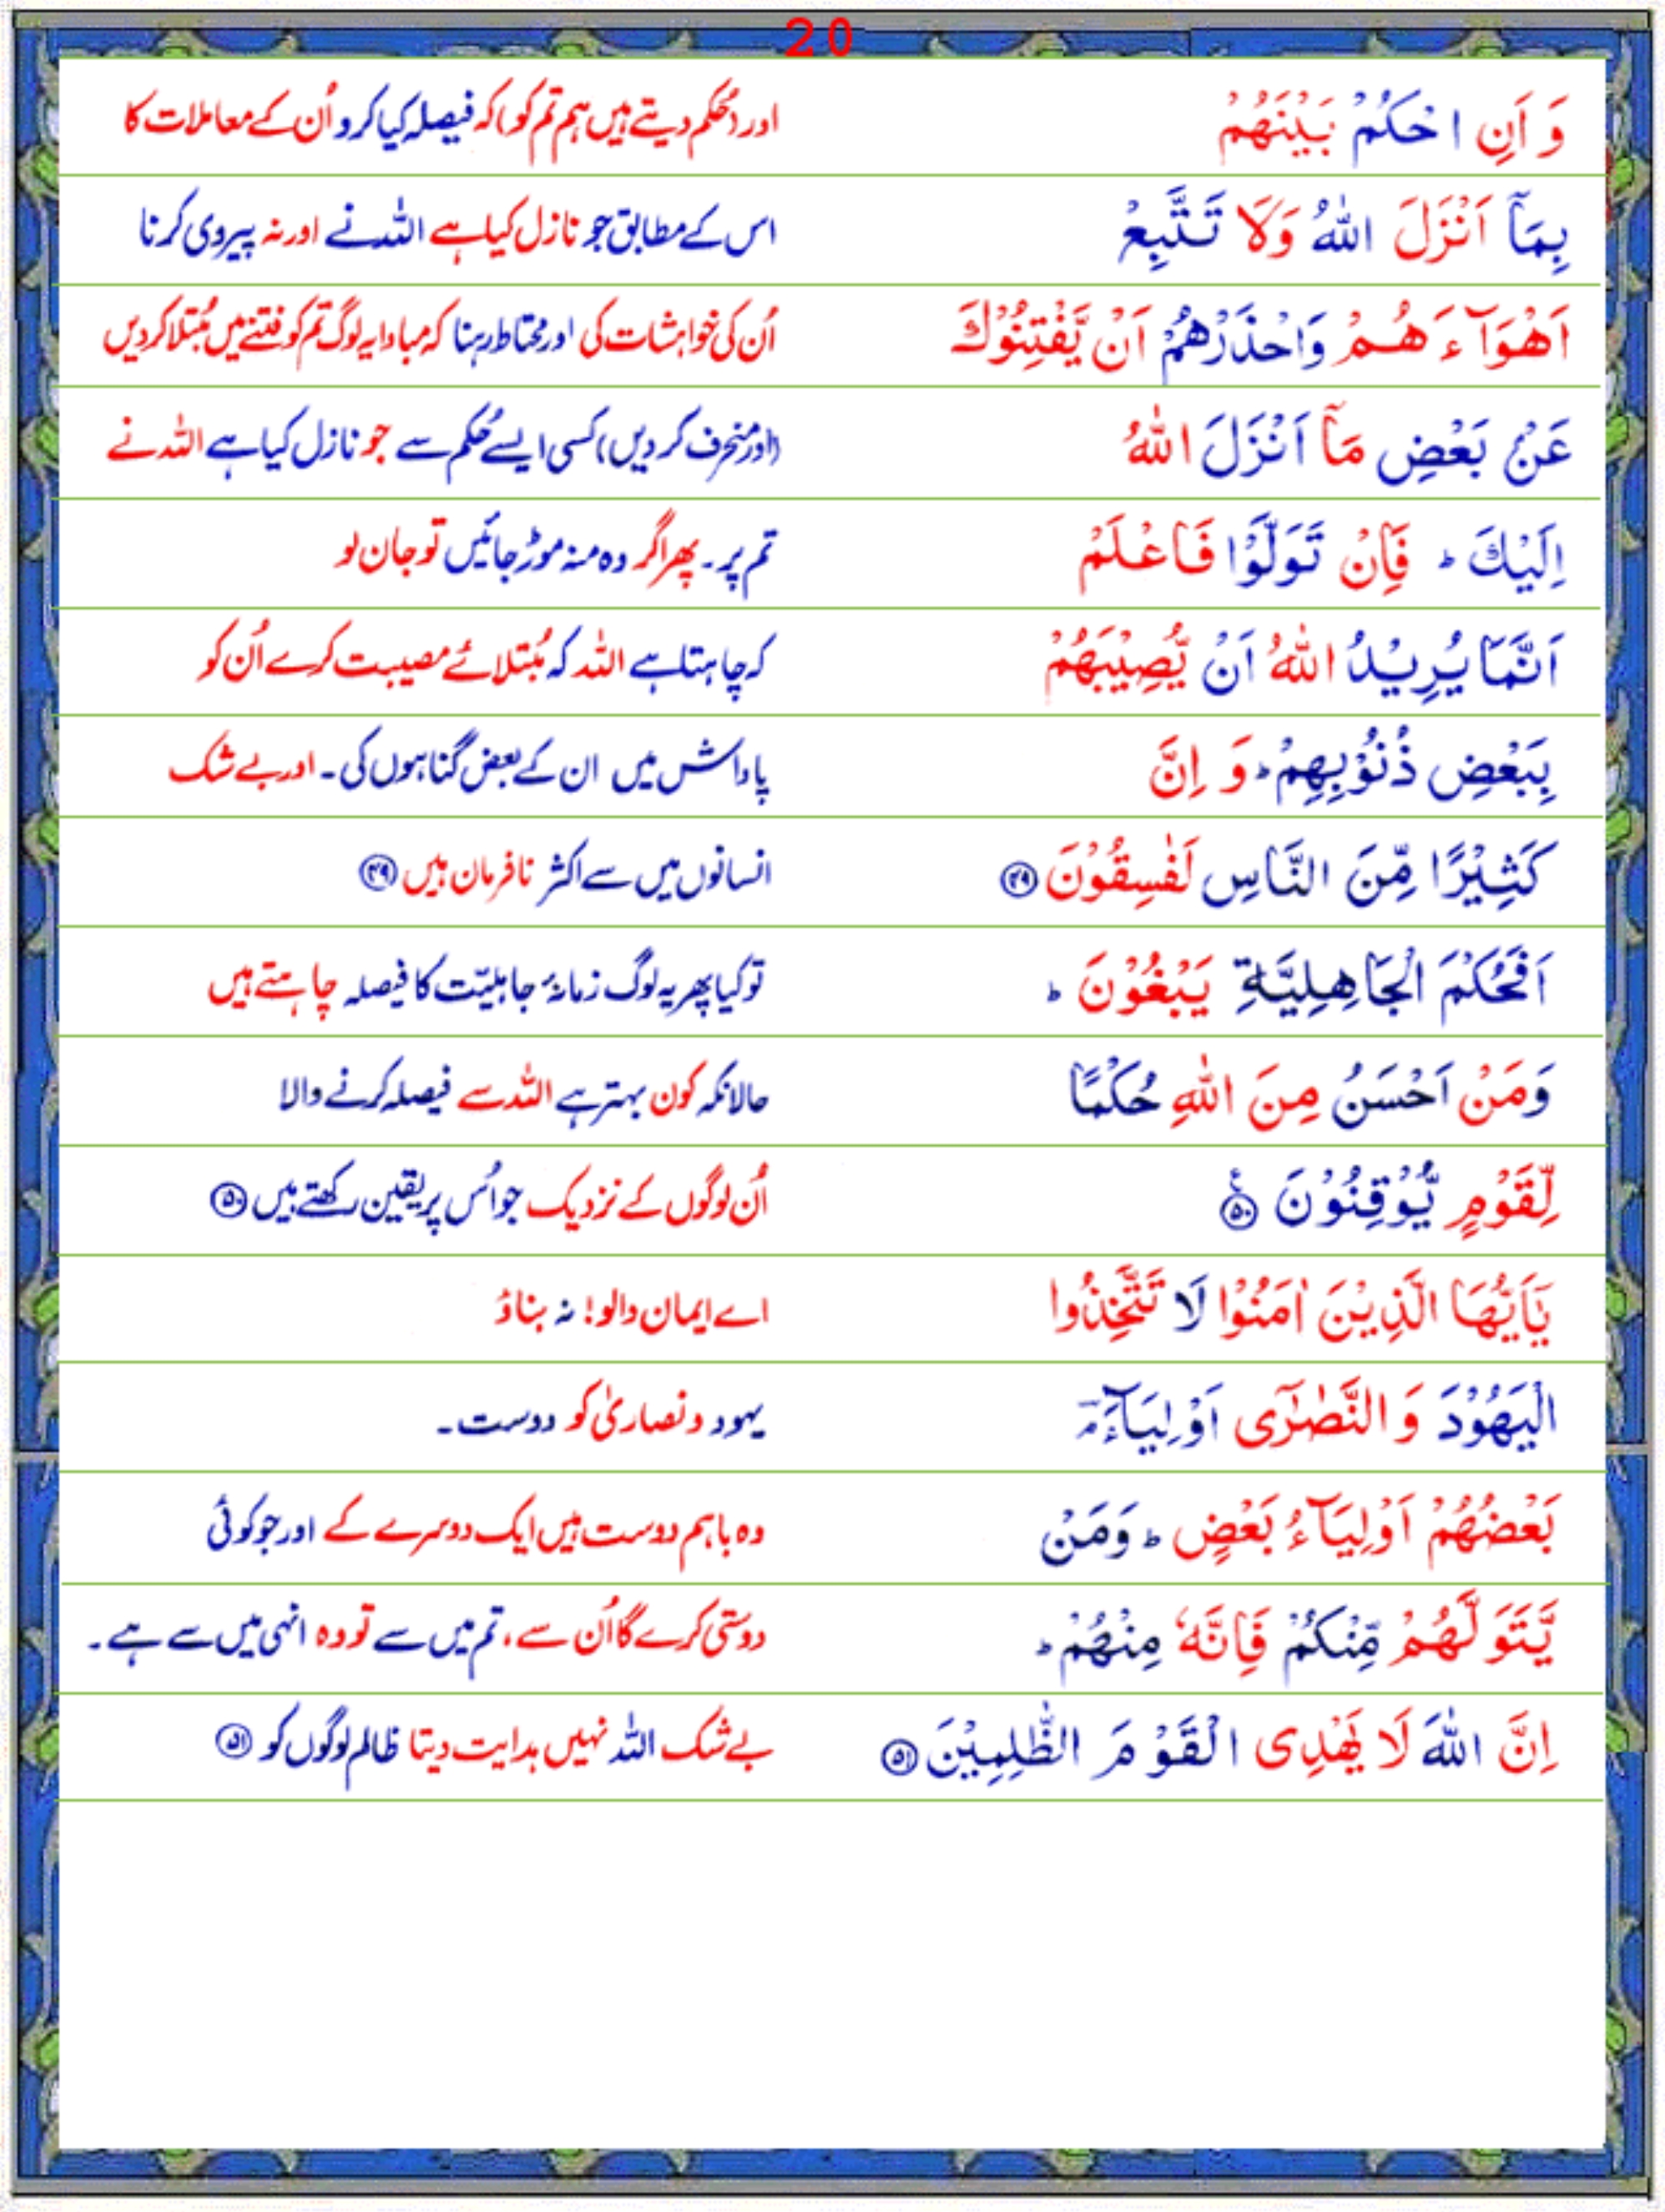 20
وَ اَنِ احْكُمْ بَيْنَهُمْ اور (حکم دیتے ہیں ہم تم کو) کہ فیصلہ کیا کرو اُن کے معاملات کا
بِمَآ اَنْزَلَ اللّٰهُ وَلَا تَتَّبِعْ اس کے مطابق جو نازل کیا ہے اللہ نے اور نہ پیروی کرنا
اَهْوَآءَهُمْ وَاحْذَرْهُمْ اَنْ يَّفْتِنُوْكَ اُن کی خواہشات کی اور محتاط رہنا کہ مبادا یہ لوگ تم کو فتنے میں مُبتلا کر دیں
عَنْۢ بَعْضِ مَآ اَنْزَلَ اللّٰهُ (اور منحرف کر دیں) کسی ایسے حُکم سے جو نازل کیا ہے اللہ نے
اِلَيْكَ ؕ فَاِنْ تَوَلَّوْا فَاعْلَمْ تم پر۔ پھر اگر وہ منہ موڑ جائیں تو جان لو
اَنَّمَا يُرِيْدُ اللّٰهُ اَنْ يُّصِيْبَهُمْ کہ چاہتا ہے اللہ کہ مُبتلائے مصیبت کرے اُن کو
بِبَعْضِ ذُنُوْبِهِمْ ؕ وَ اِنَّ پاداش میں ان کے بعض گناہوں کی۔ اور بے شک
كَثِيْرًا مِّنَ النَّاسِ لَفٰسِقُوْنَ ۴۹ انسانوں میں سے اکثر نافرمان ہیں ۴۹
اَفَحُكْمَ الْجَاهِلِيَّةِ يَبْغُوْنَ ؕ تو کیا پھر یہ لوگ زمانۂ جاہلیّت کا فیصلہ چاہتے ہیں
وَمَنْ اَحْسَنُ مِنَ اللّٰهِ حُكْمًا حالانکہ کون بہتر ہے اللہ سے فیصلہ کرنے والا
لِّقَوْمٍ يُّوْقِنُوْنَ ۵۰ اُن لوگوں کے نزدیک جو اُس پر یقین رکھتے ہیں ۵۰
يٰٓاَيُّهَا الَّذِيْنَ اٰمَنُوْا لَا تَتَّخِذُوا اے ایمان والو! نہ بناؤ
الْيَهُوْدَ وَ النَّصٰرٰٓى اَوْلِيَآءَ ۘ یہود و نصاریٰ کو دوست۔
بَعْضُهُمْ اَوْلِيَآءُ بَعْضٍ ؕ وَمَنْ وہ باہم دوست ہیں ایک دوسرے کے اور جو کوئی
يَّتَوَلَّهُمْ مِّنْكُمْ فَاِنَّهٗ مِنْهُمْ ؕ دوستی کرے گا اُن سے، تم میں سے تو وہ انہی میں سے ہے۔
اِنَّ اللّٰهَ لَا يَهْدِى الْقَوْمَ الظّٰلِمِيْنَ ۵۱ بے شک اللہ نہیں ہدایت دیتا ظالم لوگوں کو ۵۱